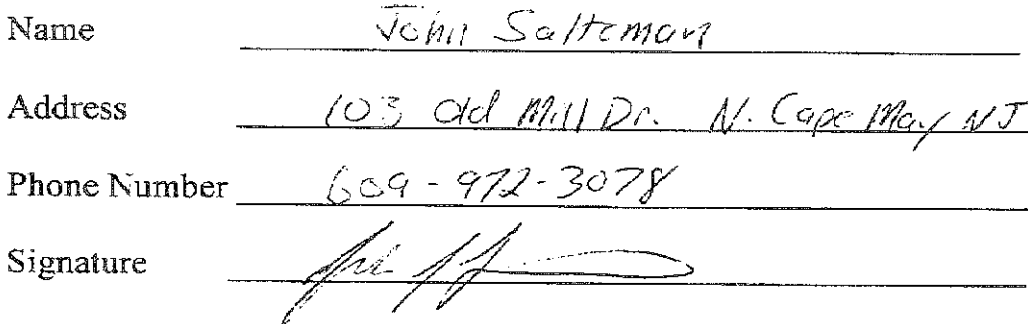 Name John Salteman
Address 103 Old Mill Dr. N. Cape May NJ
Phone Number 609-972-3078
Signature